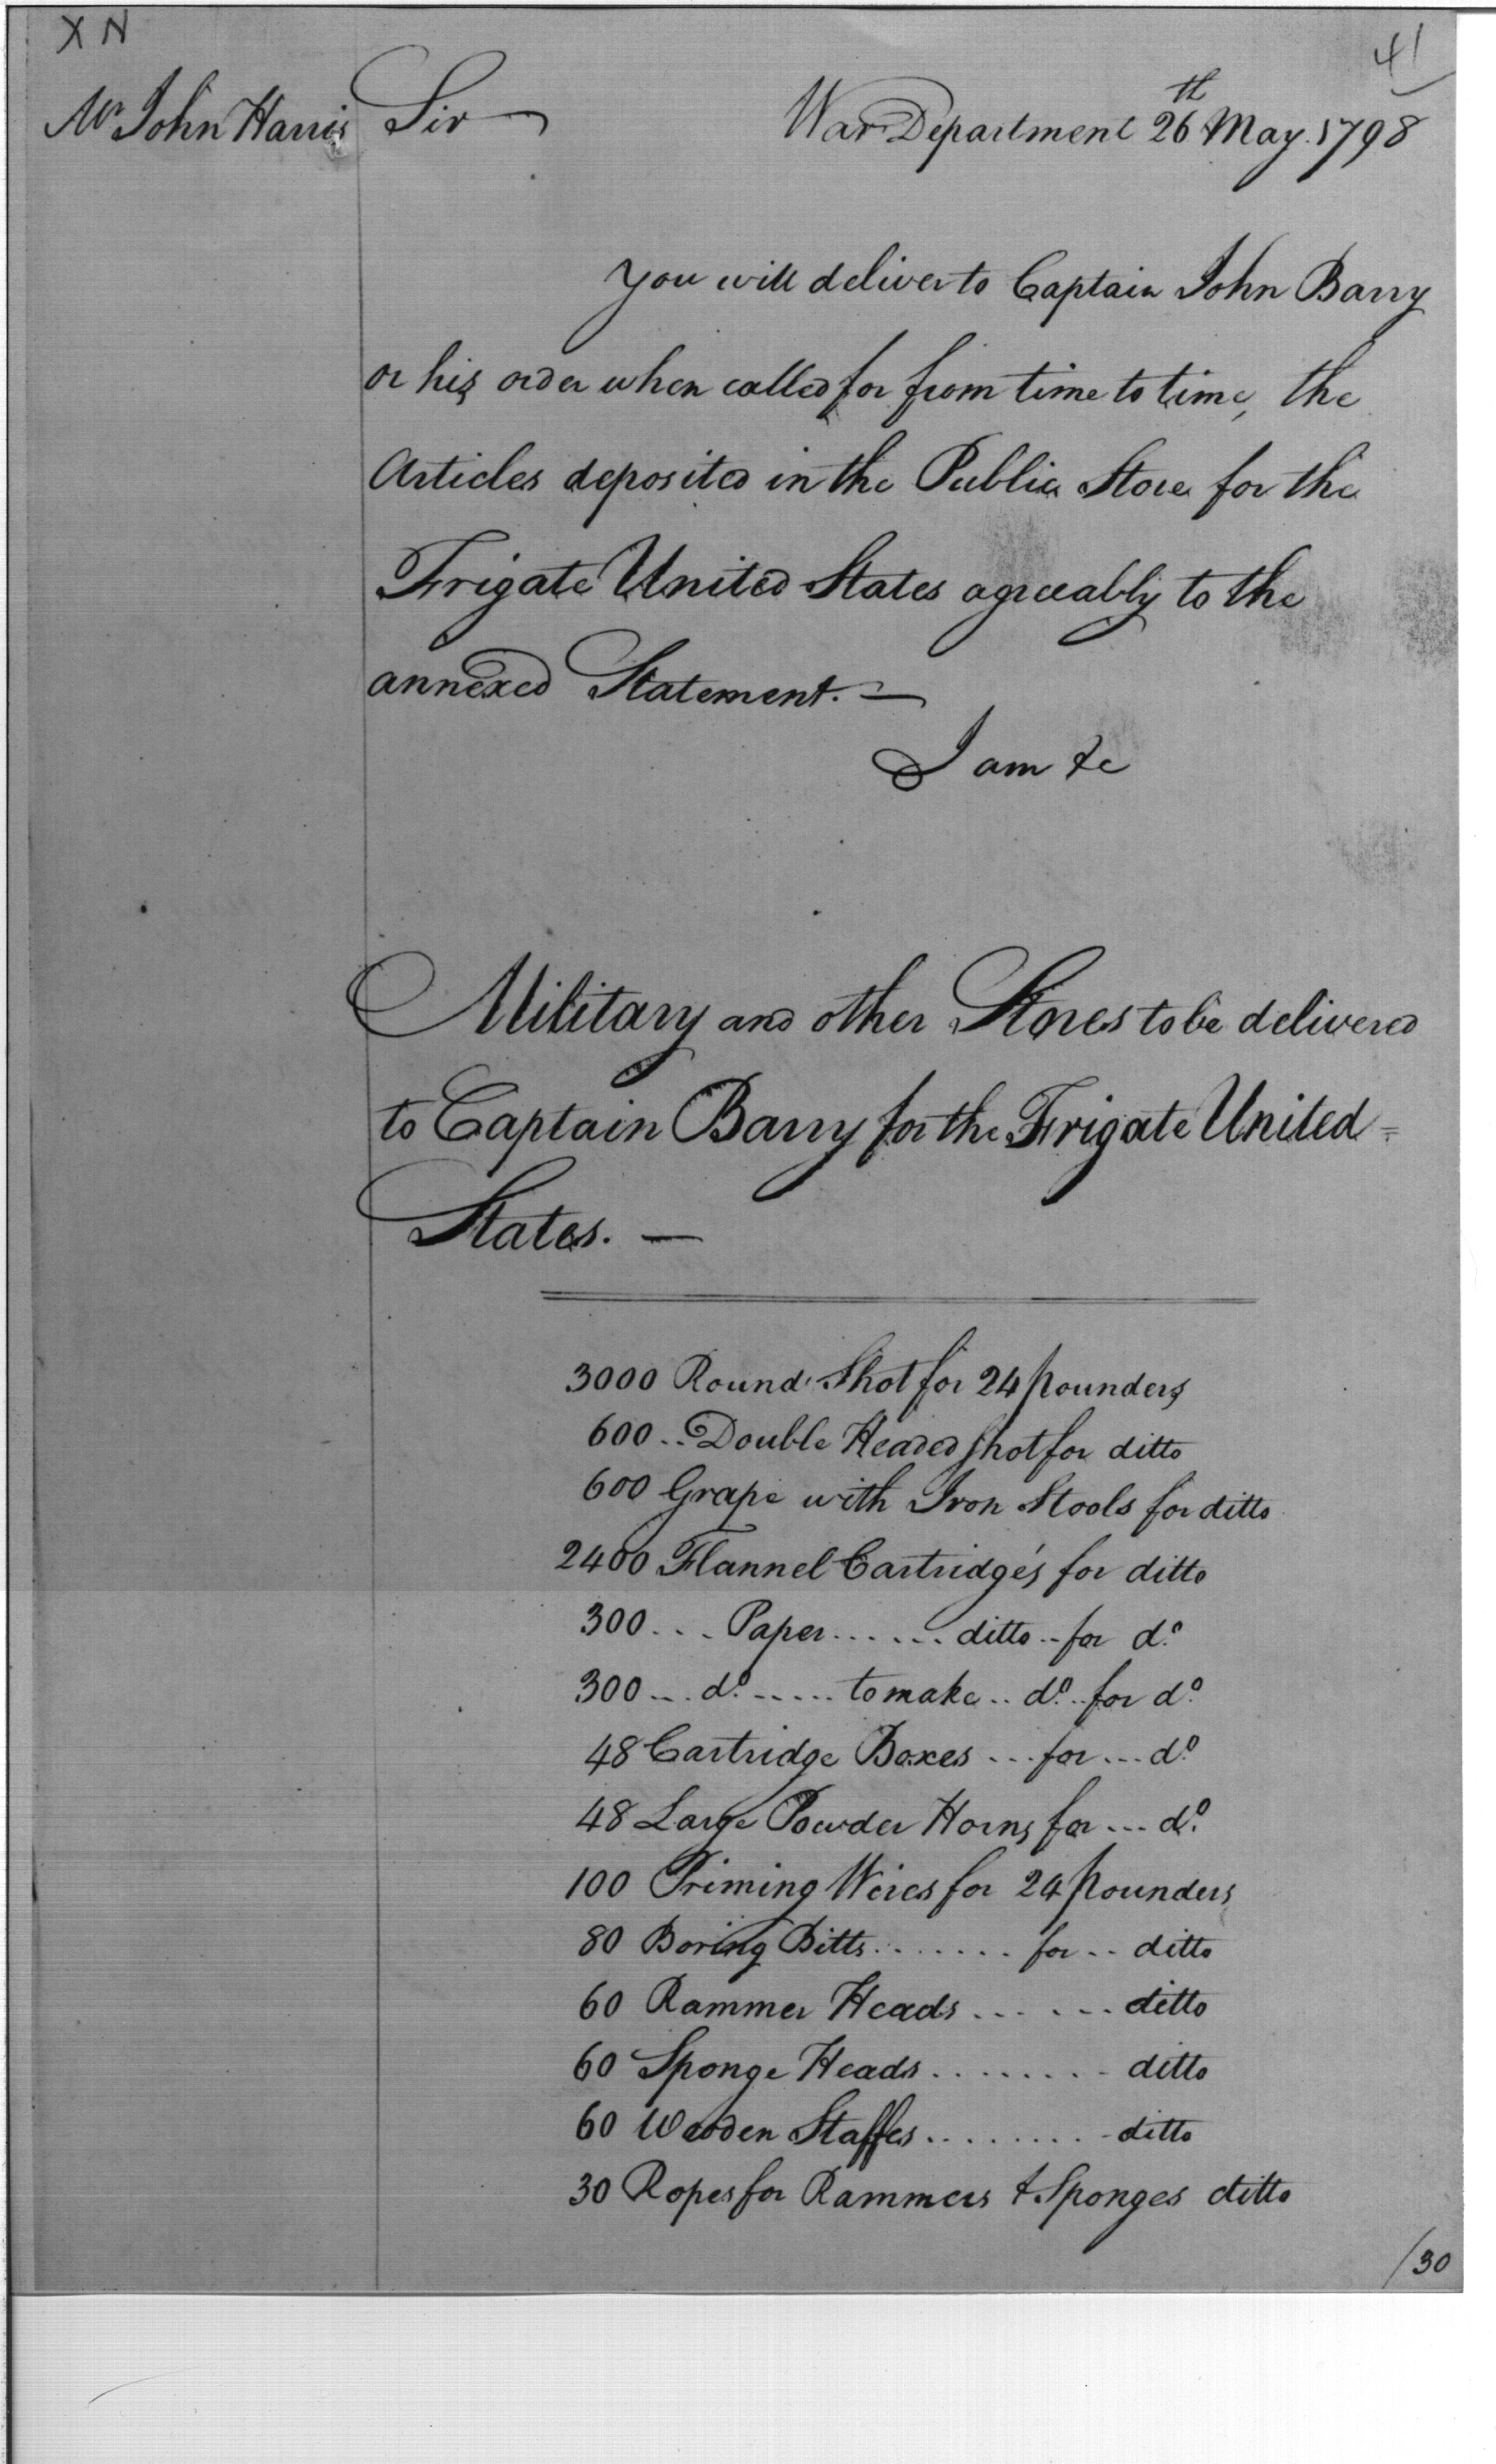 X N
41
Mr John Harris
Sir
War Department 26th May. 1798
You will deliver to Captain John Barry
or his order when called for from time to time, the
Articles deposited in the Public Store for the
Frigate United States agreeably to the
annexed Statement. —
I am &c
Military and other Stores to be delivered
to Captain Barry for the Frigate United =
States. —
3000 Round Shot for 24 pounders
600 .. Double Headed shot for ditto
600 Grape with Iron Stools for ditto
2400 Flannel Cartridge's for ditto
300 ... Paper ...... ditto .. for do.
300 ... do. ..... to make .. do. .. for do.
48 Cartridge Boxes ... for ... do.
48 Large Powder Horns for ... do.
100 Priming Wires for 24 pounders
80 Boring Bitts ........ for .. ditto
60 Rammer Heads ...... ditto
60 Sponge Heads ......... ditto
60 Wooden Staffes ......... ditto
30 Ropes for Rammers & Sponges ditto
/30